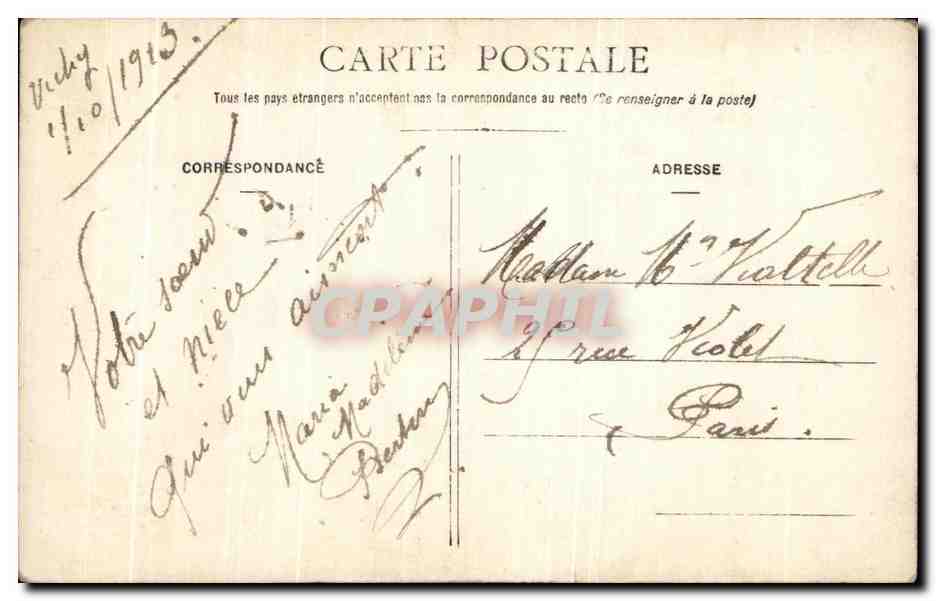 Vichy
1/10/1913.
CARTE POSTALE
Tous les pays étrangers n'acceptent pas la correspondance au recto (Se renseigner à la poste)
CORRESPONDANCE
Votre sœur
et niece
qui vous aiment.
Maria
Madeleine
ADRESSE
Madam
25 rue Violet
Paris.
CPAPHIL